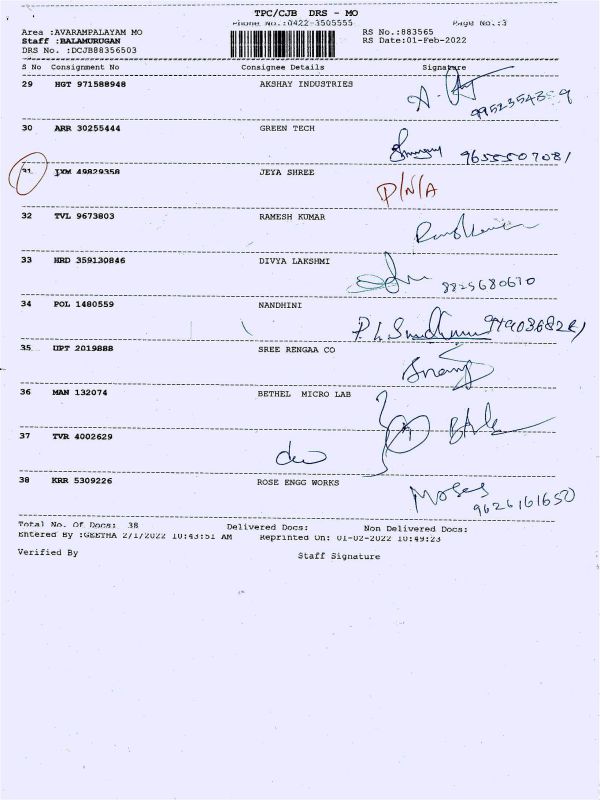 TPC/CJB DRS - MO
Phone No.:0422-3505555 Page No.:3
Area :AVARAMPALAYAM MO RS No.:883565
Staff :BALAMURUGAN RS Date:01-Feb-2022
DRS No. :DCJB88356503
S No Consignment No Consignee Details Signature
29 HGT 971588948 AKSHAY INDUSTRIES
30 ARR 30255444 GREEN TECH
9655507081
31 IXM 49829358 JEYA SHREE P/N/A
32 TVL 9673803 RAMESH KUMAR
33 HRD 359130846 DIVYA LAKSHMI
8825680670
34 POL 1480559 NANDHINI
35 UPT 2019888 SREE RENGAA CO
36 MAN 132074 BETHEL MICRO LAB
37 TVR 4002629
38 KRR 5309226 ROSE ENGG WORKS Moses
9626161650
Total No. Of Docs: 38 Delivered Docs: Non Delivered Docs:
Entered By :GEETHA 2/1/2022 10:43:51 AM Reprinted On: 01-02-2022 10:49:23
Verified By Staff Signature